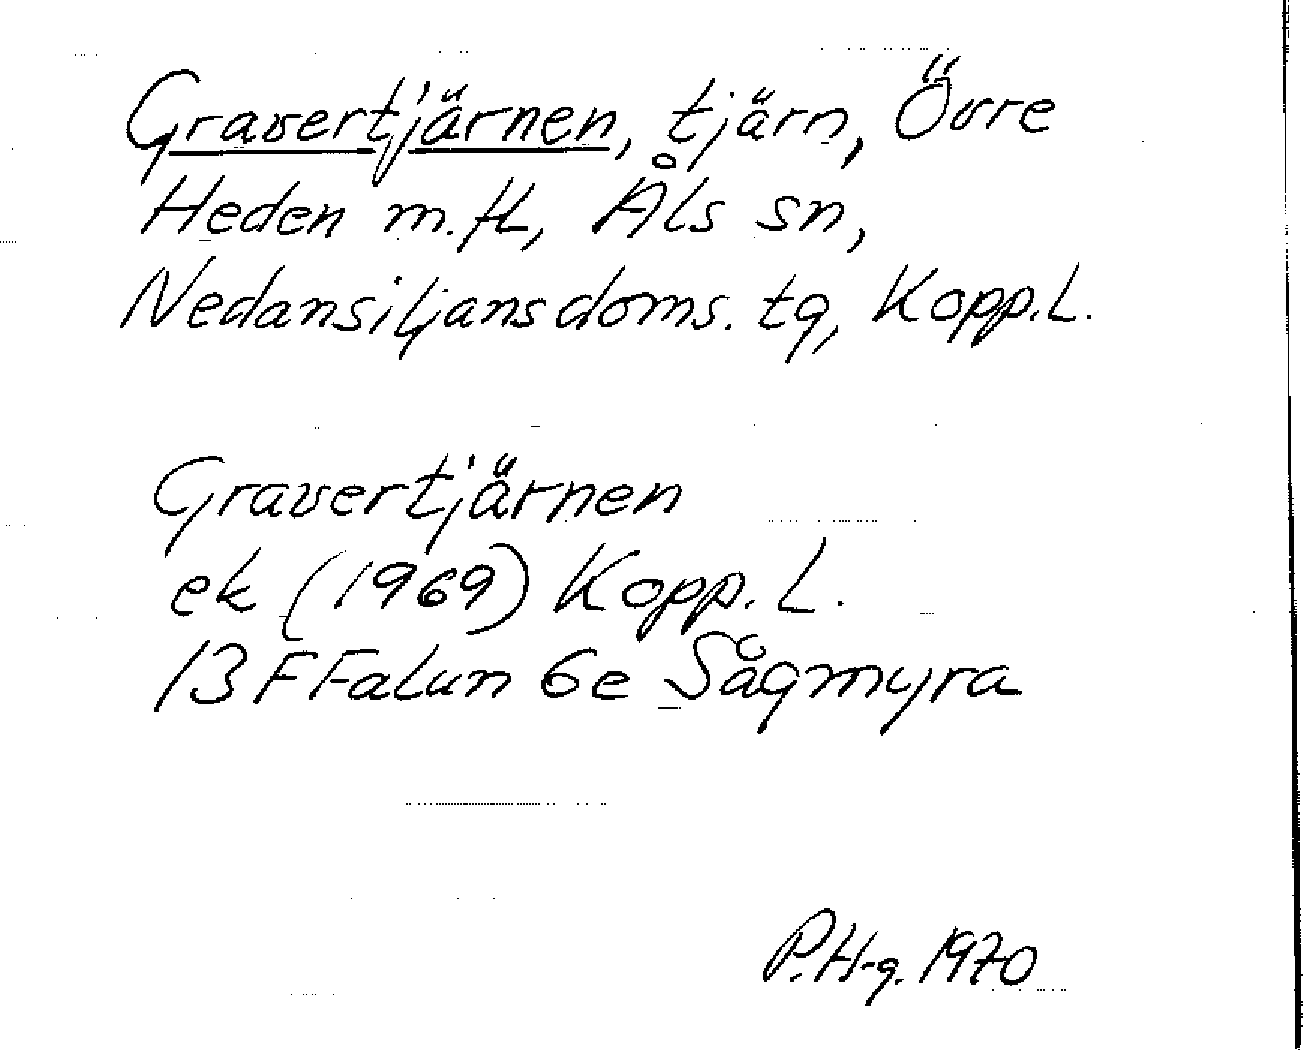 Gravertjärnen, tjärn, Övre
Heden m.fl., Åls sn,
Nedansiljans doms. tg, Kopp.L.
Gravertjärnen
ek (1969) Kopp.L.
13 F Falun 6e Sågmyra
P.H-g. 1970